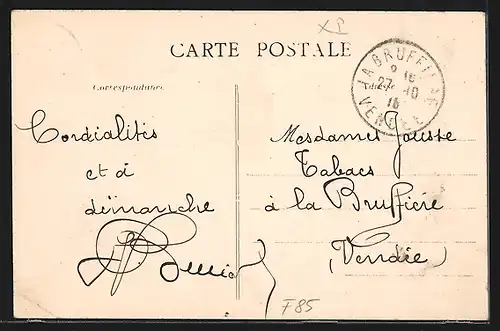 XP
CARTE POSTALE
Correspondance
Adresse
LA BRUFFIÈRE
9 15
27 -10
15
VENDÉE
Cordialités
et à
dimanche
Mesdames Jousse
Tabacs
à la Bruffière
(Vendée)
F85